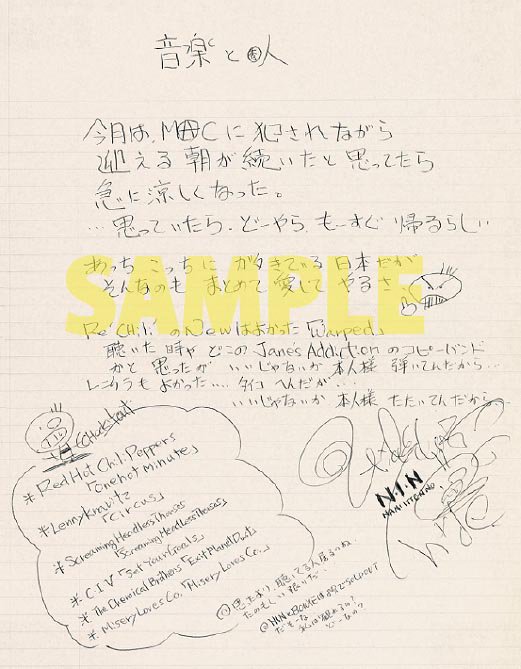 音楽と人
今月は、MCに犯されながら
迎える朝が続いたと思ってたら
急に涼しくなった。
…思っていたら、どーやら、もーすぐ帰るらしい
あっちこっちにガタきている日本だが
そんなのもまとめて愛してやるさ
SAMPLE
Re'Chili のNewはよかった「Warped」
聴いた時や どこのJane's Addictionのコピーバンド
かと思ったが いいじゃないか 本人様 弾いてんだから…
も よかった… タイコ へんだが…
いいじゃないか 本人様 たたいてんだから
* Red Hot Chili Peppers
「One hot minute」
* Lenny Kravitz
「Circus」
* Screaming Headless Torsos
「Screaming Headless Torsos」
* C I V 「Set Your Goals」
* The Chemical Brothers 「Exit Planet Dust」
* Misery Loves Co. 「Misery Loves Co.」
N.I.N
@思ったより、聴いてる人居るのね。
たのもしい限りだ。
SOLD OUT
だそーな
どーなの?